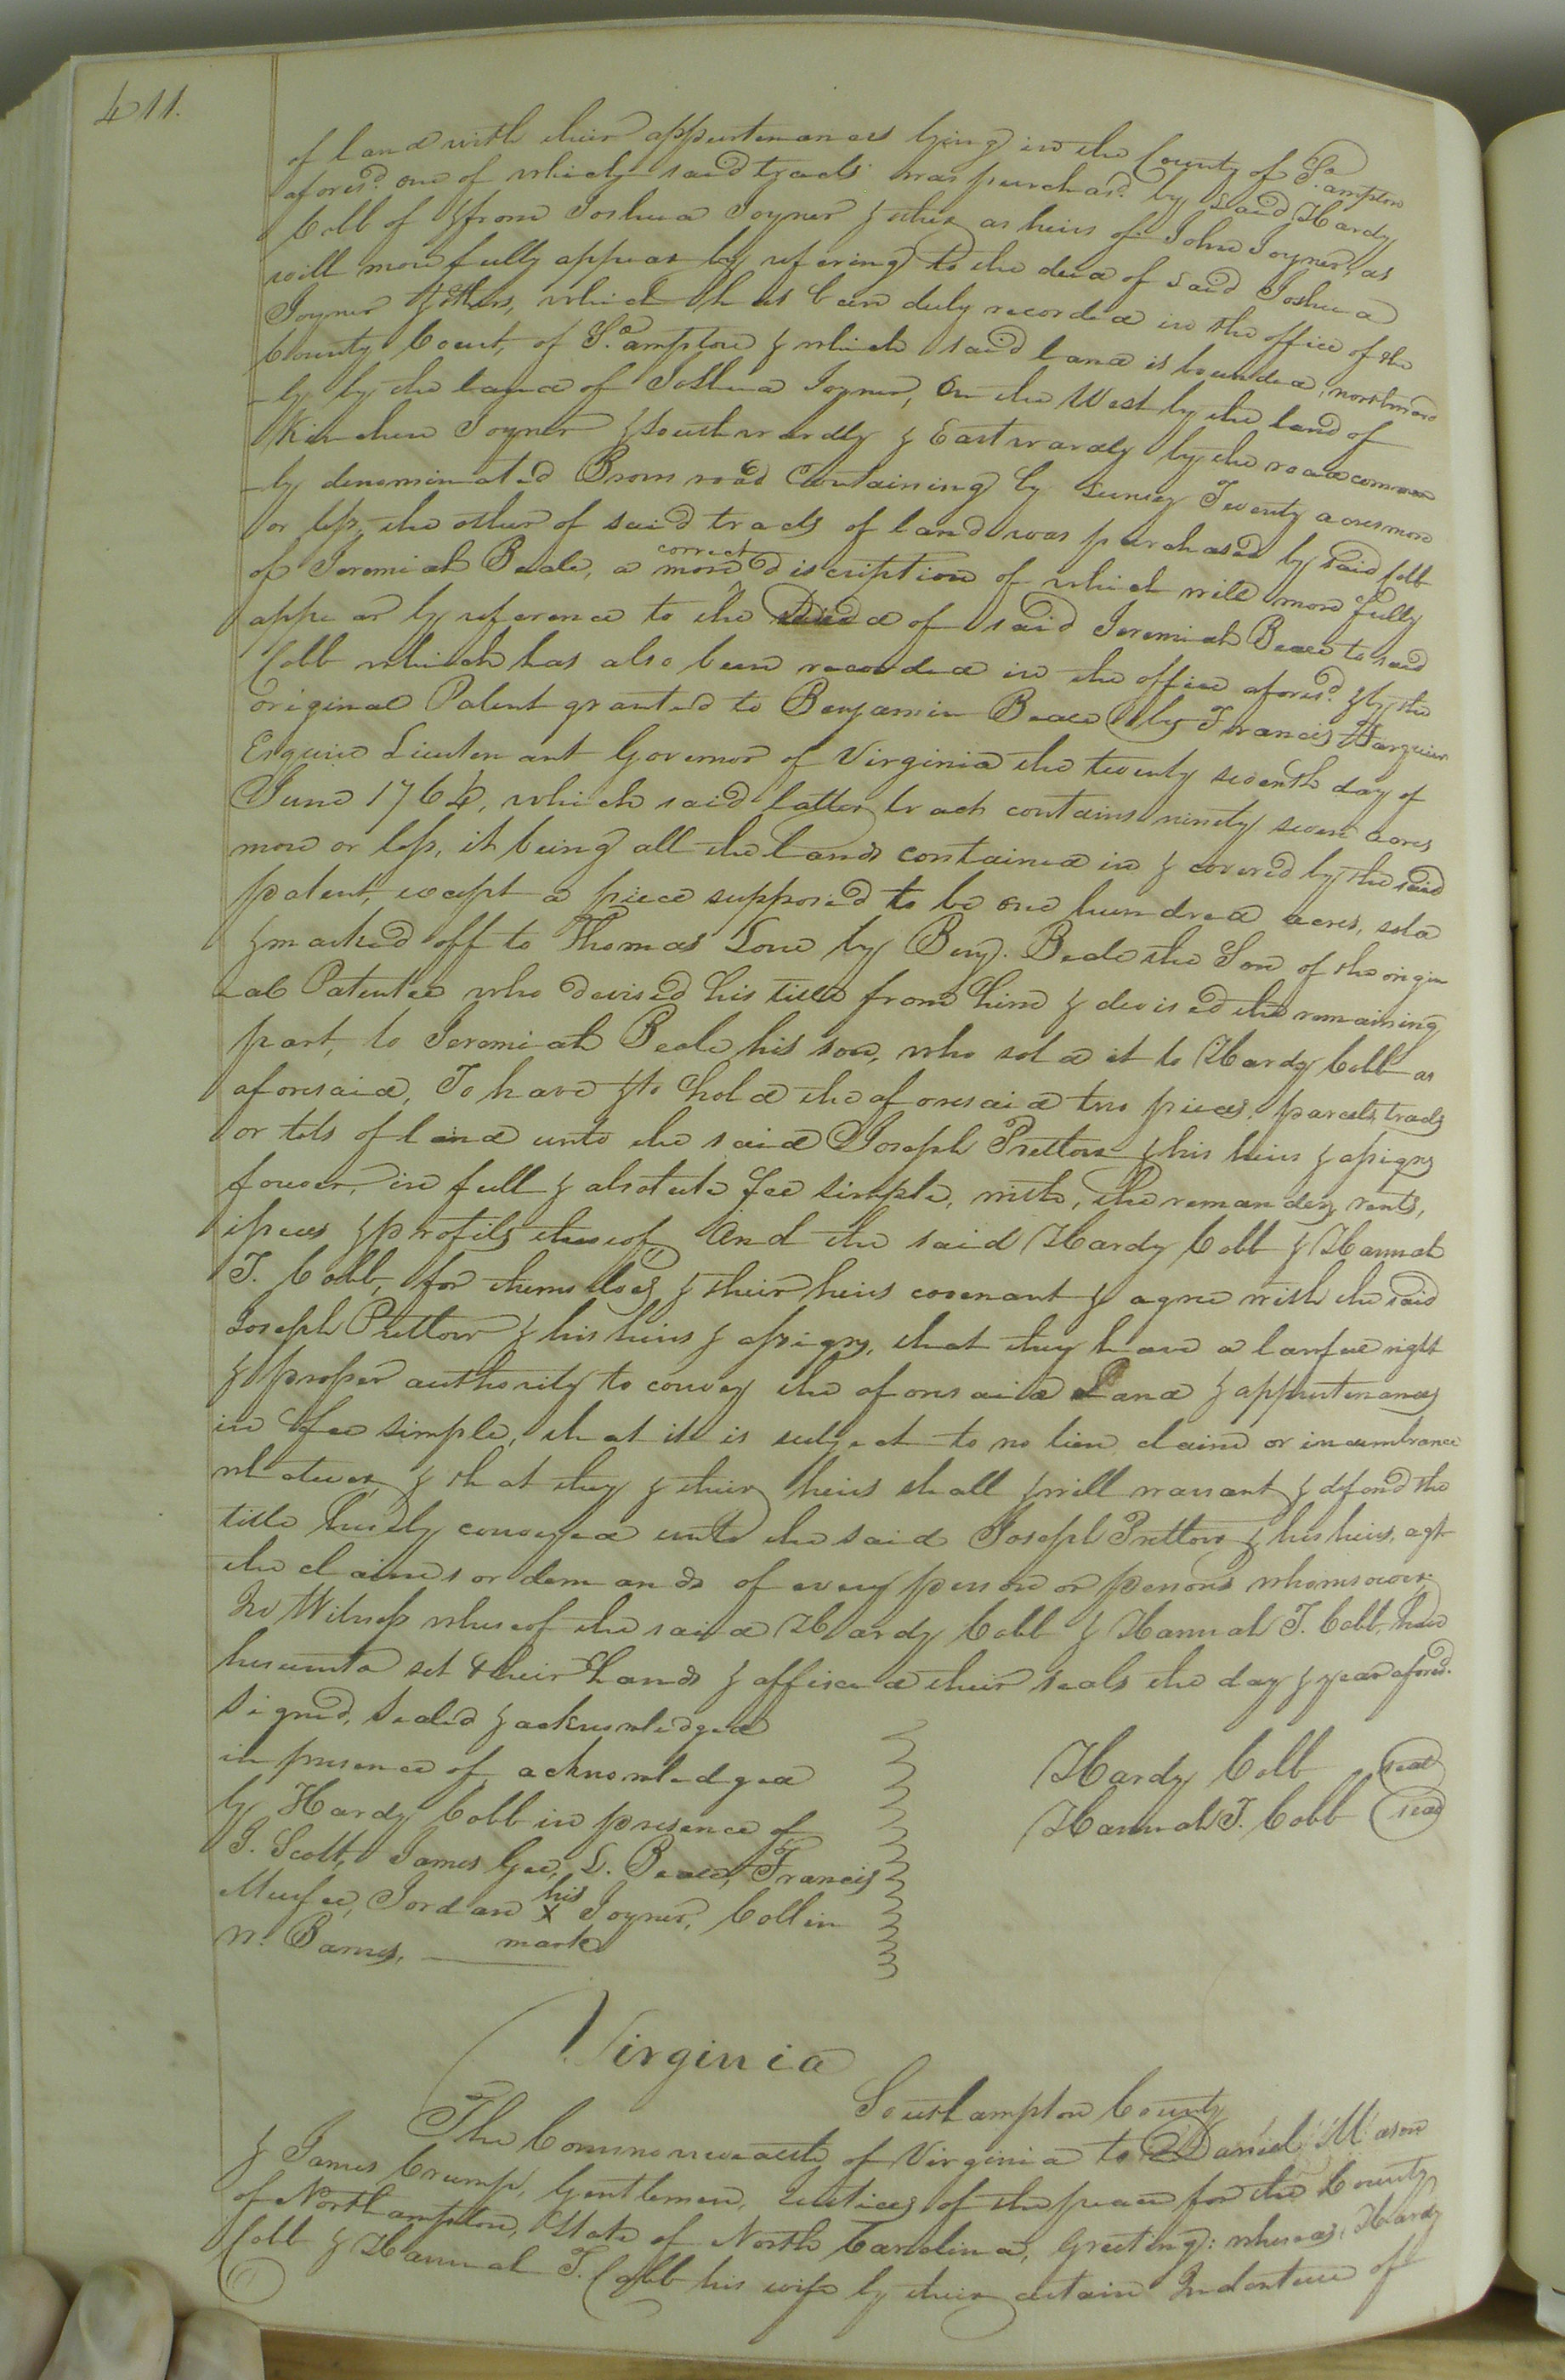 411.
of land with their appurtenances lying in the County of So.ampton
aforesd. one of which said tracts was purchasd. by said Hardy
Cobb of & from Joshua Joyner & others as heirs of John Joyner, as
will more fully appear by refering to the deed of said Joshua
Joyner & others, which has been duly recorded in the office of the
County Court, of So.ampton & which said land is bounded, northward
-ly by the land of Joshua Joyner, On the West by the land of
Kinchen Joyner & Southwardly & Eastwardly by the road common
-ly denominated Brown road Containing by survey Twenty acres more
or less, the other of said tracts of land was purchased by said Cobb
of Jeremiah Beale, a more correct discription of which will more fully
appear by reference to the deed of said Jeremiah Beale to said
Cobb which has also been recorded in the office aforesd. & by the
original Patent granted to Benjamin Beale by Francis Farquier
Esquire Lieutenant Governor of Virginia the twenty seventh day of
June 1764, which said latter tract contains ninety seven acres
more or less, it being all the lands contained in & covered by the said
patent, except a piece supposed to be one hundred acres, sold
& marked off to Thomas Love by Benj. Beale the Son of the origin
-al Patentee who devised his title from him & devised the remaining
part, to Jeremiah Beale his son, who sold it to Hardy Cobb as
aforesaid, To have & to hold the aforesaid two pieces, parcels, tracts
or lots of land unto the said Joseph Pretlow & his heirs & assigns
forever, in full & absolute fee simple, with, the remander, rents,
issues & profits thereof And the said Hardy Cobb & Hannah
T. Cobb, for themselves & their heirs covenant & agree with the said
Joseph Pretlow & his heirs & assigns, that they have a lawful right
& proper authority to convey the aforesaid Land & appurtenances
in fee simple, that it is subject to no lien, claim or incumbrance
whatever, & that they & their heirs shall & will warrant & defend the
title hereby conveyed unto the said Joseph Pretlow & his heirs, agt
the claims or demands of every person or persons whomsoever;
In Witness whereof the said Hardy Cobb & Hannah T. Cobb, have
hereunto set their hands & affixed their seals the day & year aforesd.
Signed, Sealed & acknowledged
in presence of, acknowledged
by Hardy Cobb in presence of
J. Scott, James Gee, L. Beale, Francis
Murfee, Jordan his X mark Joyner, Collin
W. Barnes,
Hardy Cobb seal
Hannah T. Cobb seal
Virginia
Southampton County
The Commonwealth of Virginia to Daniel Mason
& James Crump, Gentlemen, Justices of the peace for the County
of Northampton, State of North Carolina, Greeting: whereas, Hardy
Cobb & Hannah T. Cobb his wife by their certain Indenture of